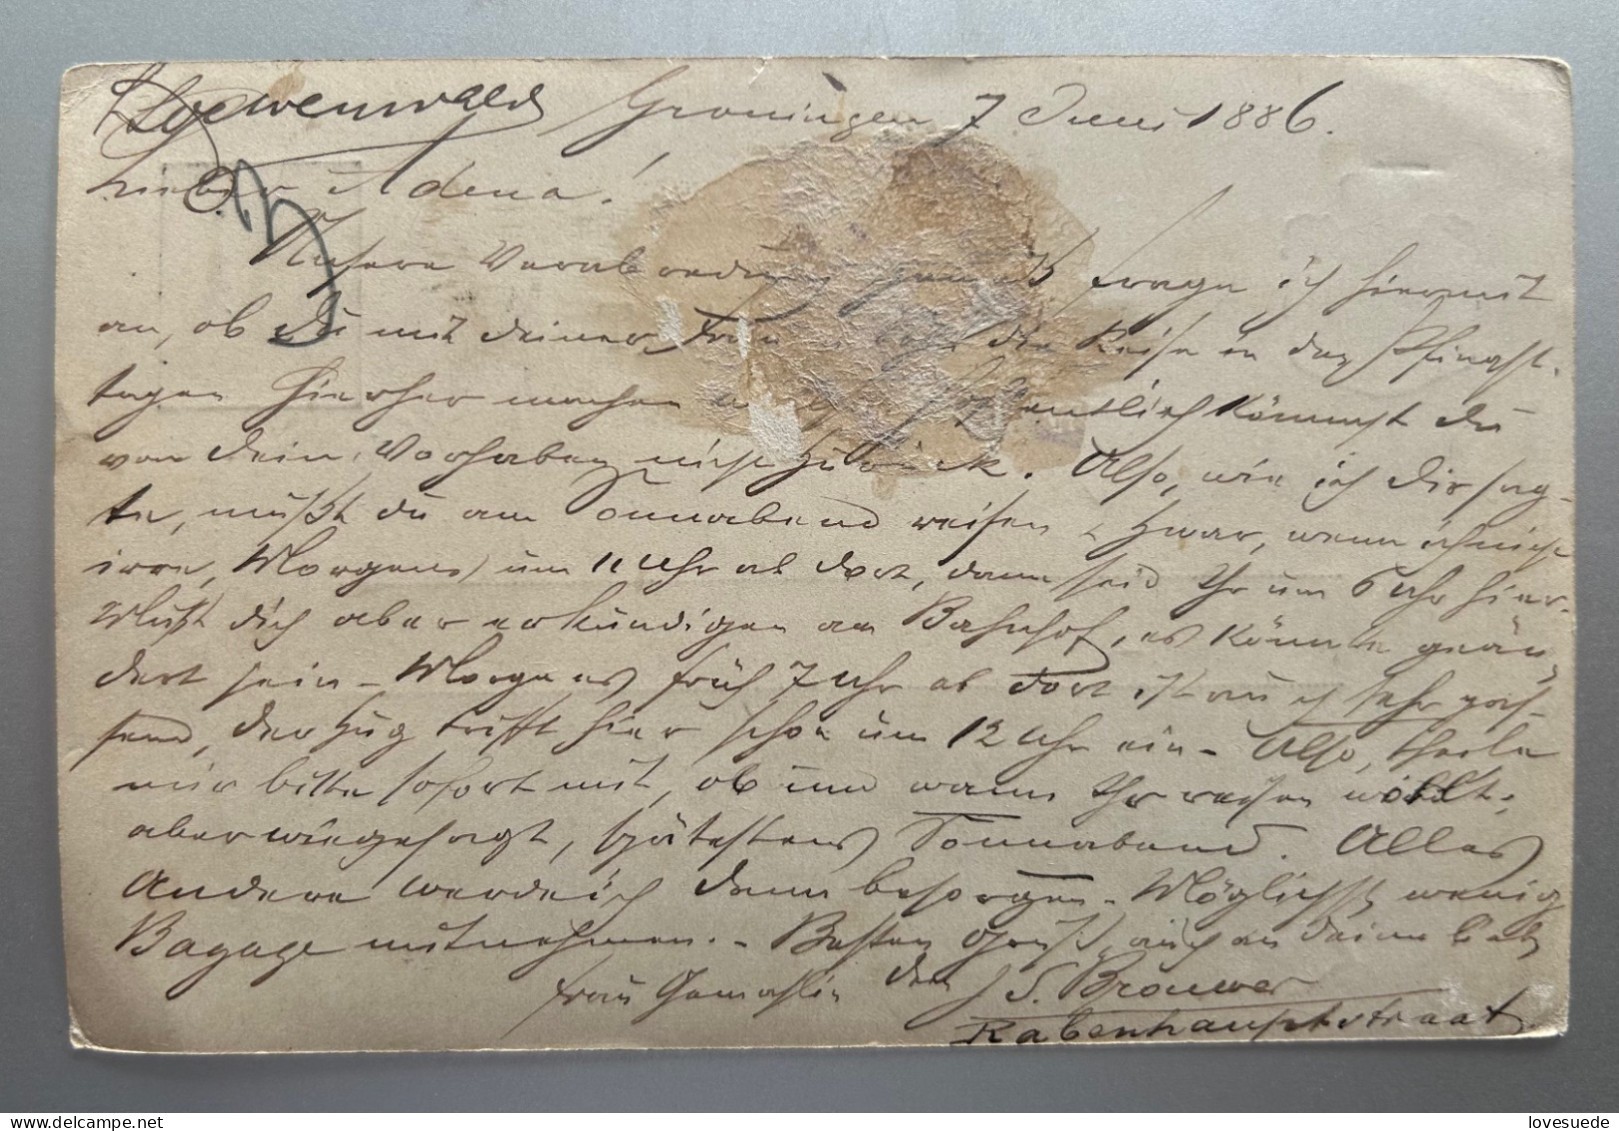 Loewenwald Groningen 7 Juni 1886.
Lieber Adena!
Unsere Verabredung gemäß frage ich hiermit
an, ob Du mit deiner Frau die Reise in den Pfingst-
tagen hierher machen Hoffentlich kömmst du
von dein Vorhaben nicht zurück. Also, wie ich dir sag-
te, mußt du am Sonnabend reisen & zwar, wenn ich nicht
irre, Morgens um 11 Uhr ab dort, dann seid Ihr um 6 Uhr hier.
Mußt dich aber erkundigen am Bahnhof, es könnte geän-
dert sein - Morgens früh 7 Uhr ab dort ist auch sehr pas-
send, der Zug trifft hier schon um 12 Uhr ein - Also, theile
mir bitte sofort mit, ob und wann Ihr reisen wollt;
aber wie gesagt, spätestens Sonnabend. Alles
Andere werde ich dann besorgen - Möglichst wenig
Bagage mitnehmen. - Besten Gruß, auch an deine liebe
Frau Gemahlin dein J S. Brouwer
Rabenhauptstraat
lovesuede